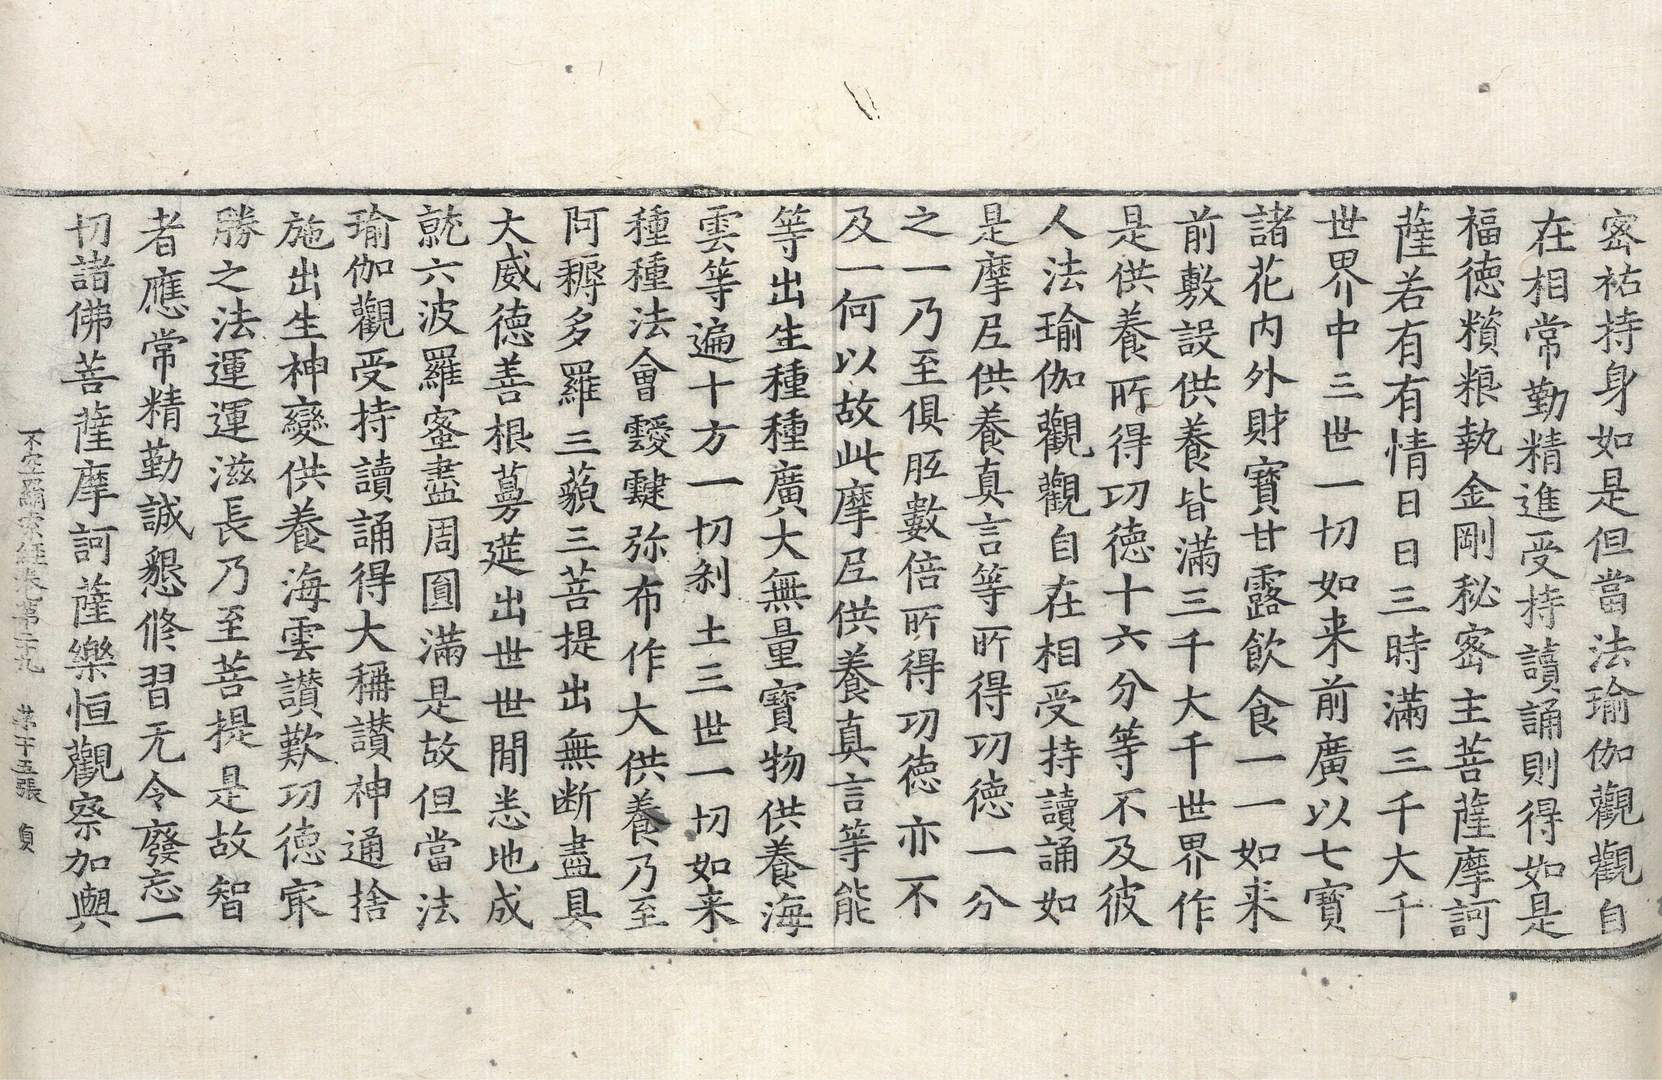 密祐持身如是但當法瑜伽觀觀自
在相常勤精進受持讀誦則得如是
福德䉷粮執金剛秘密主菩薩摩訶
薩若有有情日日三時滿三千大千
世界中三世一切如来前廣以七寶
諸花内外財寶甘露飲食一一如来
前敷設供養皆滿三千大千世界作
是供養所得功德十六分等不及彼
人法瑜伽觀觀自在相受持讀誦如
是摩尼供養真言等所得功德一分
之一乃至俱胝數倍所得功德亦不
及一何以故此摩尼供養真言等能
等出生種種廣大無量寶物供養海
雲等遍十方一切刹土三世一切如来
種種法會靉靆弥布作大供養乃至
阿耨多羅三藐三菩提出無断盡具
大威德善根蕚莚出世世間悉地成
就六波羅蜜盡周圓滿是故但當法
瑜伽觀受持讀誦得大稱讃神通捨
施出生神變供養海雲讃歎功德㝡
勝之法運運滋長乃至菩提是故智
者應常精勤誠懇修習无令廢忘一
切諸佛菩薩摩訶薩樂恒觀察加與
不空羂索経卷第二十九 第十五張 貞